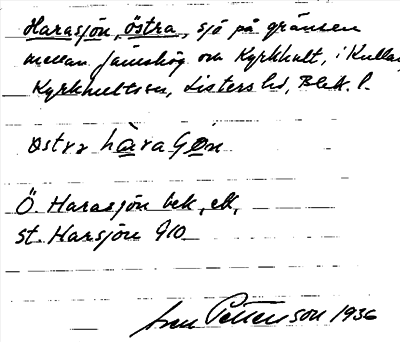 Harasjön, östra, sjö på gränsen
mellan Jämshög och Kyrkhult, i Kulla,
Kyrkhults sn, Listers hd, Blek. l.
östra hàraʃön
Ö. Harasjön bek, ek,
St. Harsjön G10
Sven Petterson 1936